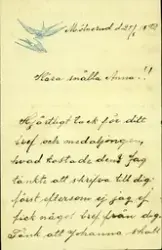 Mölnerud d. 28/1 1892
Kära snälla Anna!!
Hjärtligt tack för ditt
bref och medaljongen,
hvad kostade den? Jag
tänkte att skrifva till dig
först eftersom ej jag ej
fick något bref från dig.
Tänk att Johanna skall